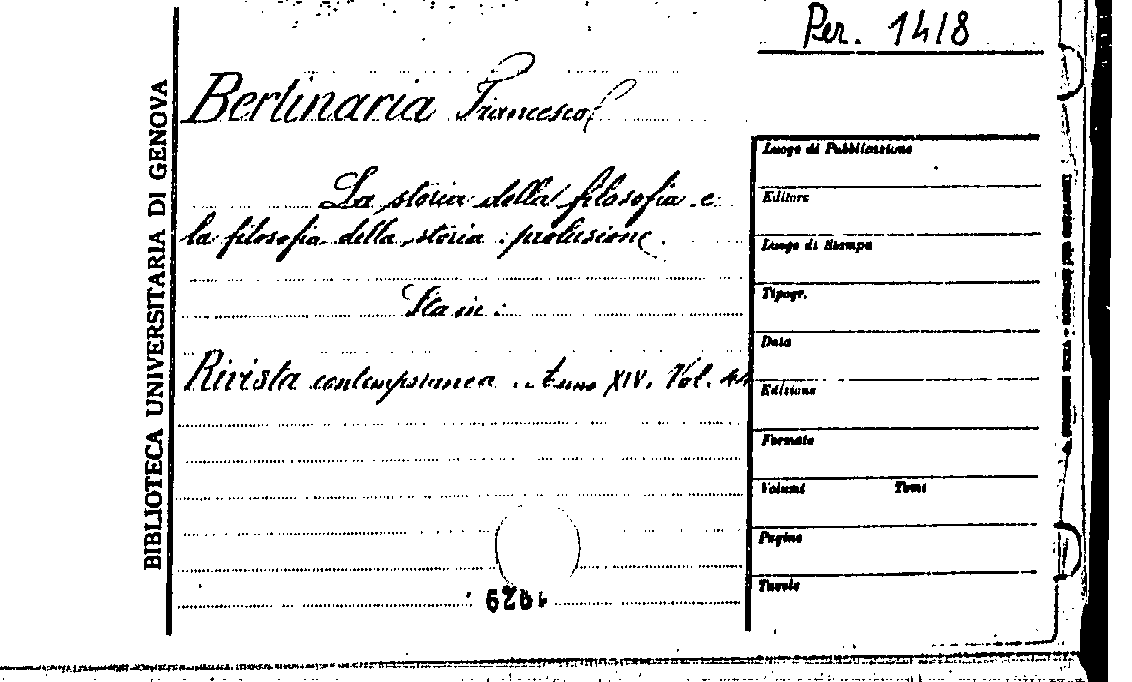 Per. 1418
BIBLIOTECA UNIVERSITARIA DI GENOVA
Bertinaria Francesco
La storia della filosofia e
la filosofia della storia : prolusione.
Sta in :
Rivista contemporanea . Anno XIV. Vol. 44
Luogo di Pubblicazione
Editore
Luogo di Stampa
Tipogr.
Data
Edizione
Formato
Volumi Tomi
Pagine
Tavole